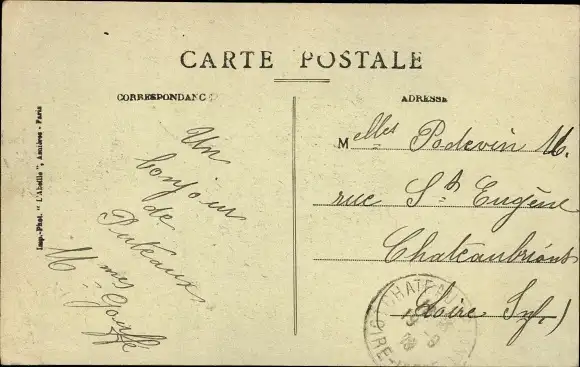 CARTE POSTALE
CORRESPONDANCE
ADRESSE
Imp.-Phot. "L'Abeille", Asnières - Paris
Un
bonjour
de
Puteaux
Mmes
Melles Podevin M.
rue Ste Eugène
Chateaubriant
(Loire Inf.)
CHATEAU